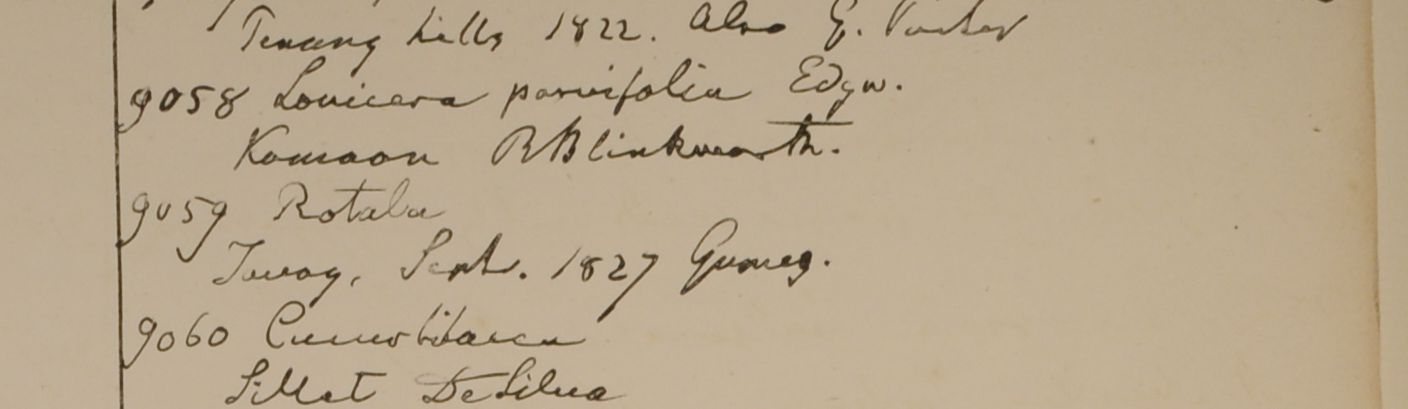 Penang hills 1822. Also G. Porter
9058 Lonicera parvifolia Edgw.
Kamaon RBlinkworth.
9059 Rotala
Tavoy, Sept. 1827 Gomez.
9060 Cucurbitacea
Sillet DeSilva